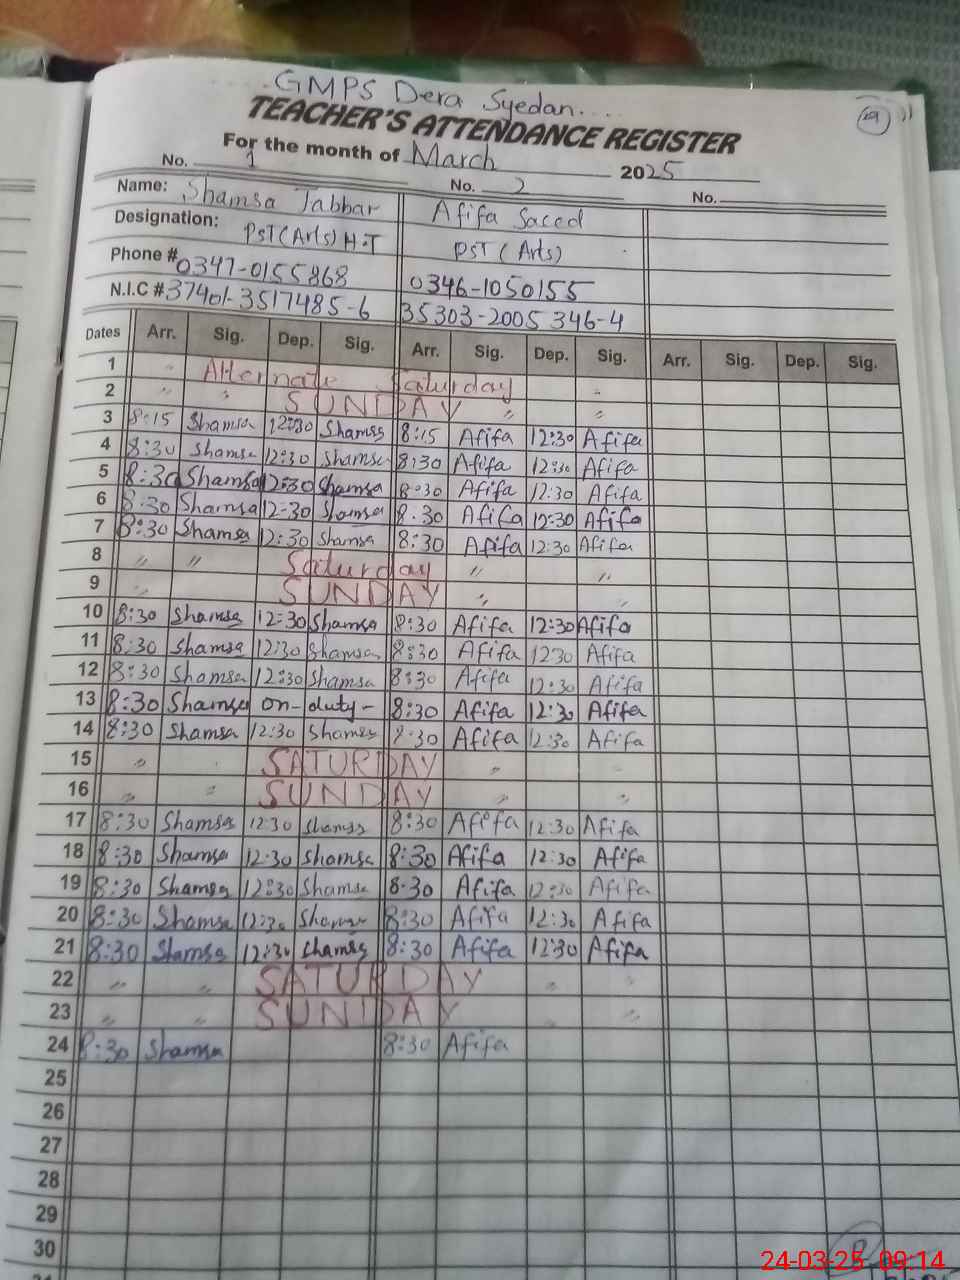 GMPS Dera Syedan....
TEACHER'S ATTENDANCE REGISTER
For the month of March 2025
No. 1 No. 2 No.
Name: Shamsa Jabbar Afifa Saeed
Designation: PST (Arts) H.T PST (Arts)
Phone # 0347-0155868 0346-1050155
N.I.C # 37401-3517485-6 35303-2005346-4
Dates Arr. Sig. Dep. Sig. Arr. Sig. Dep. Sig. Arr. Sig. Dep. Sig.
1 " Alternate Saturday "
2 " " SUNDAY " "
3 8:15 Shamsa 12:30 Shamsa 8:15 Afifa 12:30 Afifa
4 8:30 Shamsa 12:30 Shamsa 8:30 Afifa 12:30 Afifa
5 8:30 Shamsa 12:30 Shamsa 8:30 Afifa 12:30 Afifa
6 8:30 Shamsa 12:30 Shamsa 8:30 Afifa 12:30 Afifa
7 8:30 Shamsa 12:30 Shamsa 8:30 Afifa 12:30 Afifa
8 " " Saturday " "
9 " SUNDAY " "
10 8:30 Shamsa 12:30 Shamsa 8:30 Afifa 12:30 Afifa
11 8:30 Shamsa 12:30 Shamsa 8:30 Afifa 1230 Afifa
12 8:30 Shamsa 12:30 Shamsa 8:30 Afifa 12:30 Afifa
13 8:30 Shamsa on-duty- 8:30 Afifa 12:30 Afifa
14 8:30 Shamsa 12:30 Shamsa 8:30 Afifa 12:30 Afifa
15 " SATURDAY " "
16 " " SUNDAY " "
17 8:30 Shamsa 12:30 Shamsa 8:30 Afifa 12:30 Afifa
18 8:30 Shamsa 12:30 Shamsa 8:30 Afifa 12:30 Afifa
19 8:30 Shamsa 12:30 Shamsa 8:30 Afifa 12:30 Afifa
20 8:30 Shamsa 12:30 Shamsa 8:30 Afifa 12:30 Afifa
21 8:30 Shamsa 12:30 Shamsa 8:30 Afifa 12:30 Afifa
22 " " SATURDAY " "
23 " " SUNDAY "
24 8:30 Shamsa 8:30 Afifa
25
26
27
28
29
30
24-03-25 09:14